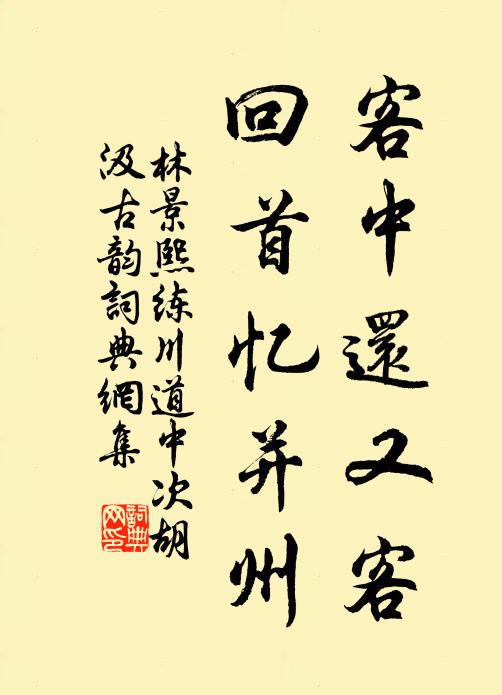 客中還又客
回首忆并州
林景熙练川道中次胡
汲古韵詞典網集
詞典
网印